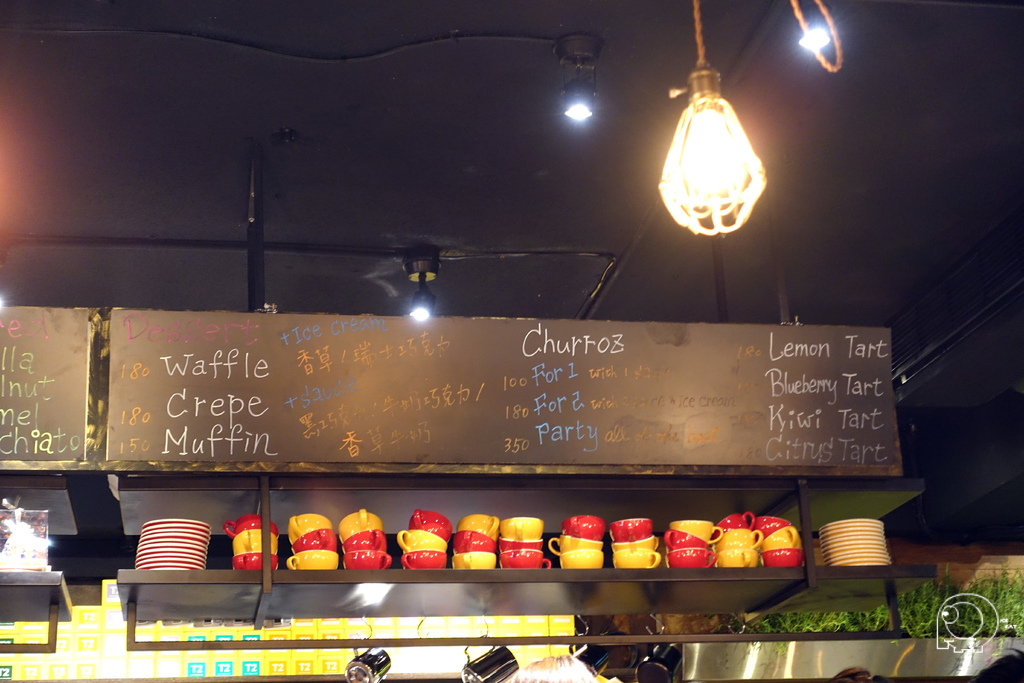 Dessert
+Ice cream
180 Waffle
香草/瑞士巧克力
+sauce
180 Crepe
黑巧克力/牛奶巧克力/
150 Muffin
香草牛奶
lla
lnut
mel
chiato
Churroz
100 For 1 with 1
180 For 2 with ice cream
350 Party all
180 Lemon Tart
Blueberry Tart
Kiwi Tart
180 Citrus Tart
T2
T2 T2 T2